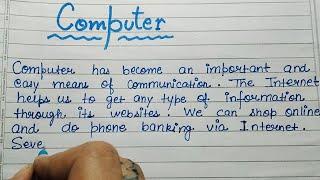 Computer
Computer has become an important and
easy means of communication. The Internet
helps us to get any type of information
through its websites. We can shop online
and do phone banking via Internet.
Seve